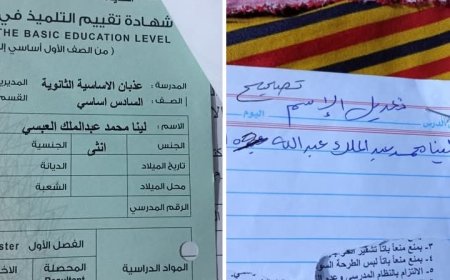 شهادة تقييم التلميذ في
THE BASIC EDUCATION LEVEL
( من الصف الأول أساسي إلى
المدرسة : عذبان الاساسية الثانوية
المديرية
الصف : السادس اساسي
القسم
الاسم : لينا محمد عبدالملك العبسي
الجنس
انثى
الجنسية
تاريخ الميلاد
الديانة
محل الميلاد
الشعبة
الرقم المدرسي
الفصل الأول
ster
المواد الدراسية
المحصلة
تصحيح
تعديل الإسم
الدرس
اليوم
لينا محمد عبدالملك عبدالله
٣- يمنع منعاً باتاً
٤- يمنع منعاً باتاً لبس الطرحة
٥- الالتزام بالنظام المدرسي